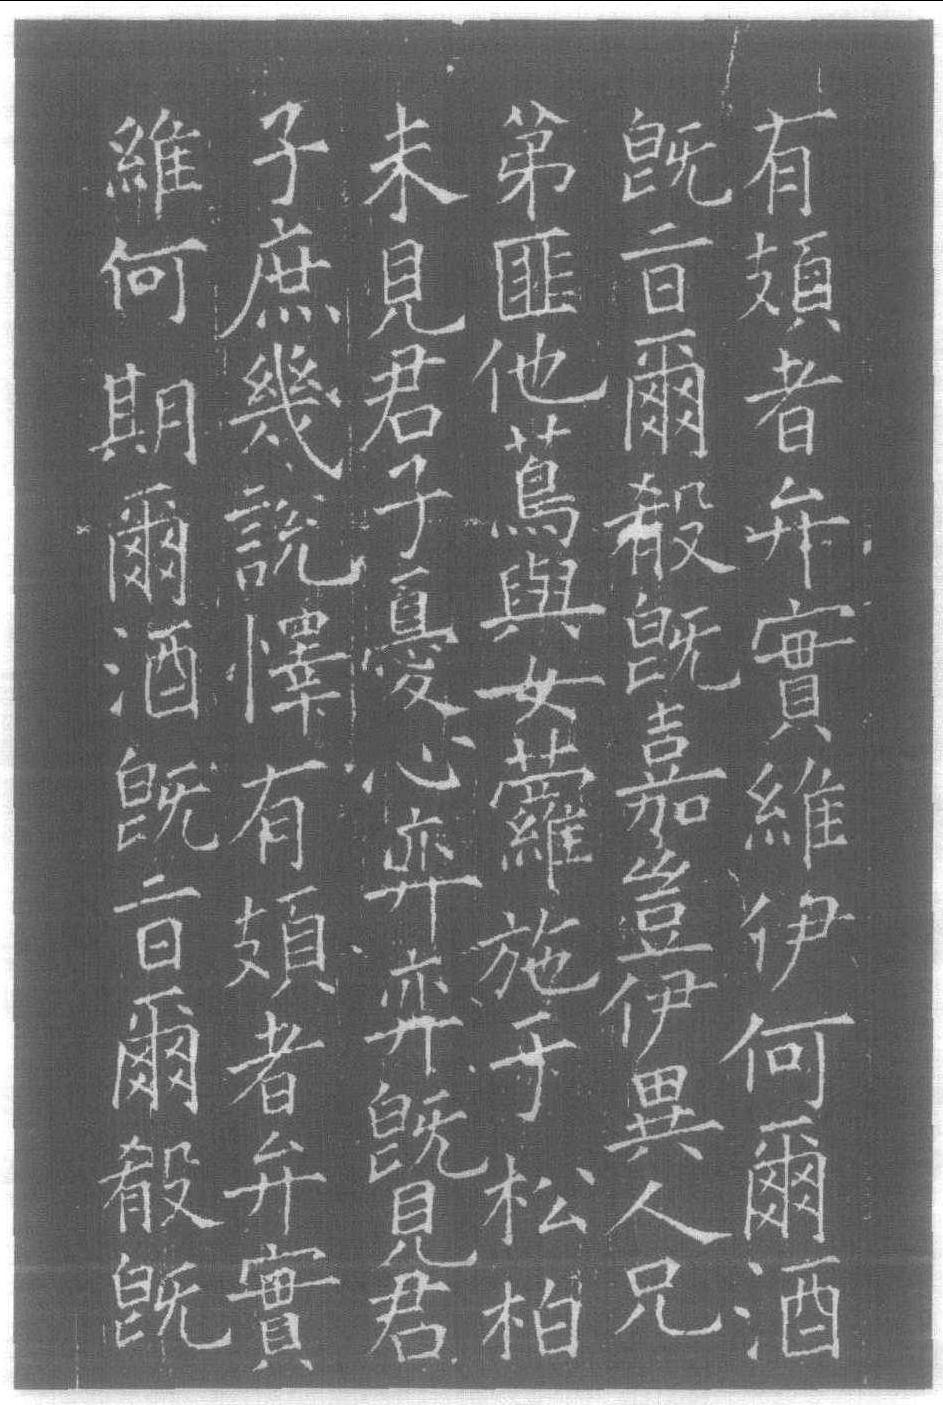 有頍者弁實維伊何爾酒
既旨爾殽既嘉豈伊異人兄
第匪他蔦與女蘿施于松柏
未見君子憂心弈弈既見君
子庶幾說懌有頍者弁實
維何期爾酒既旨爾殽既